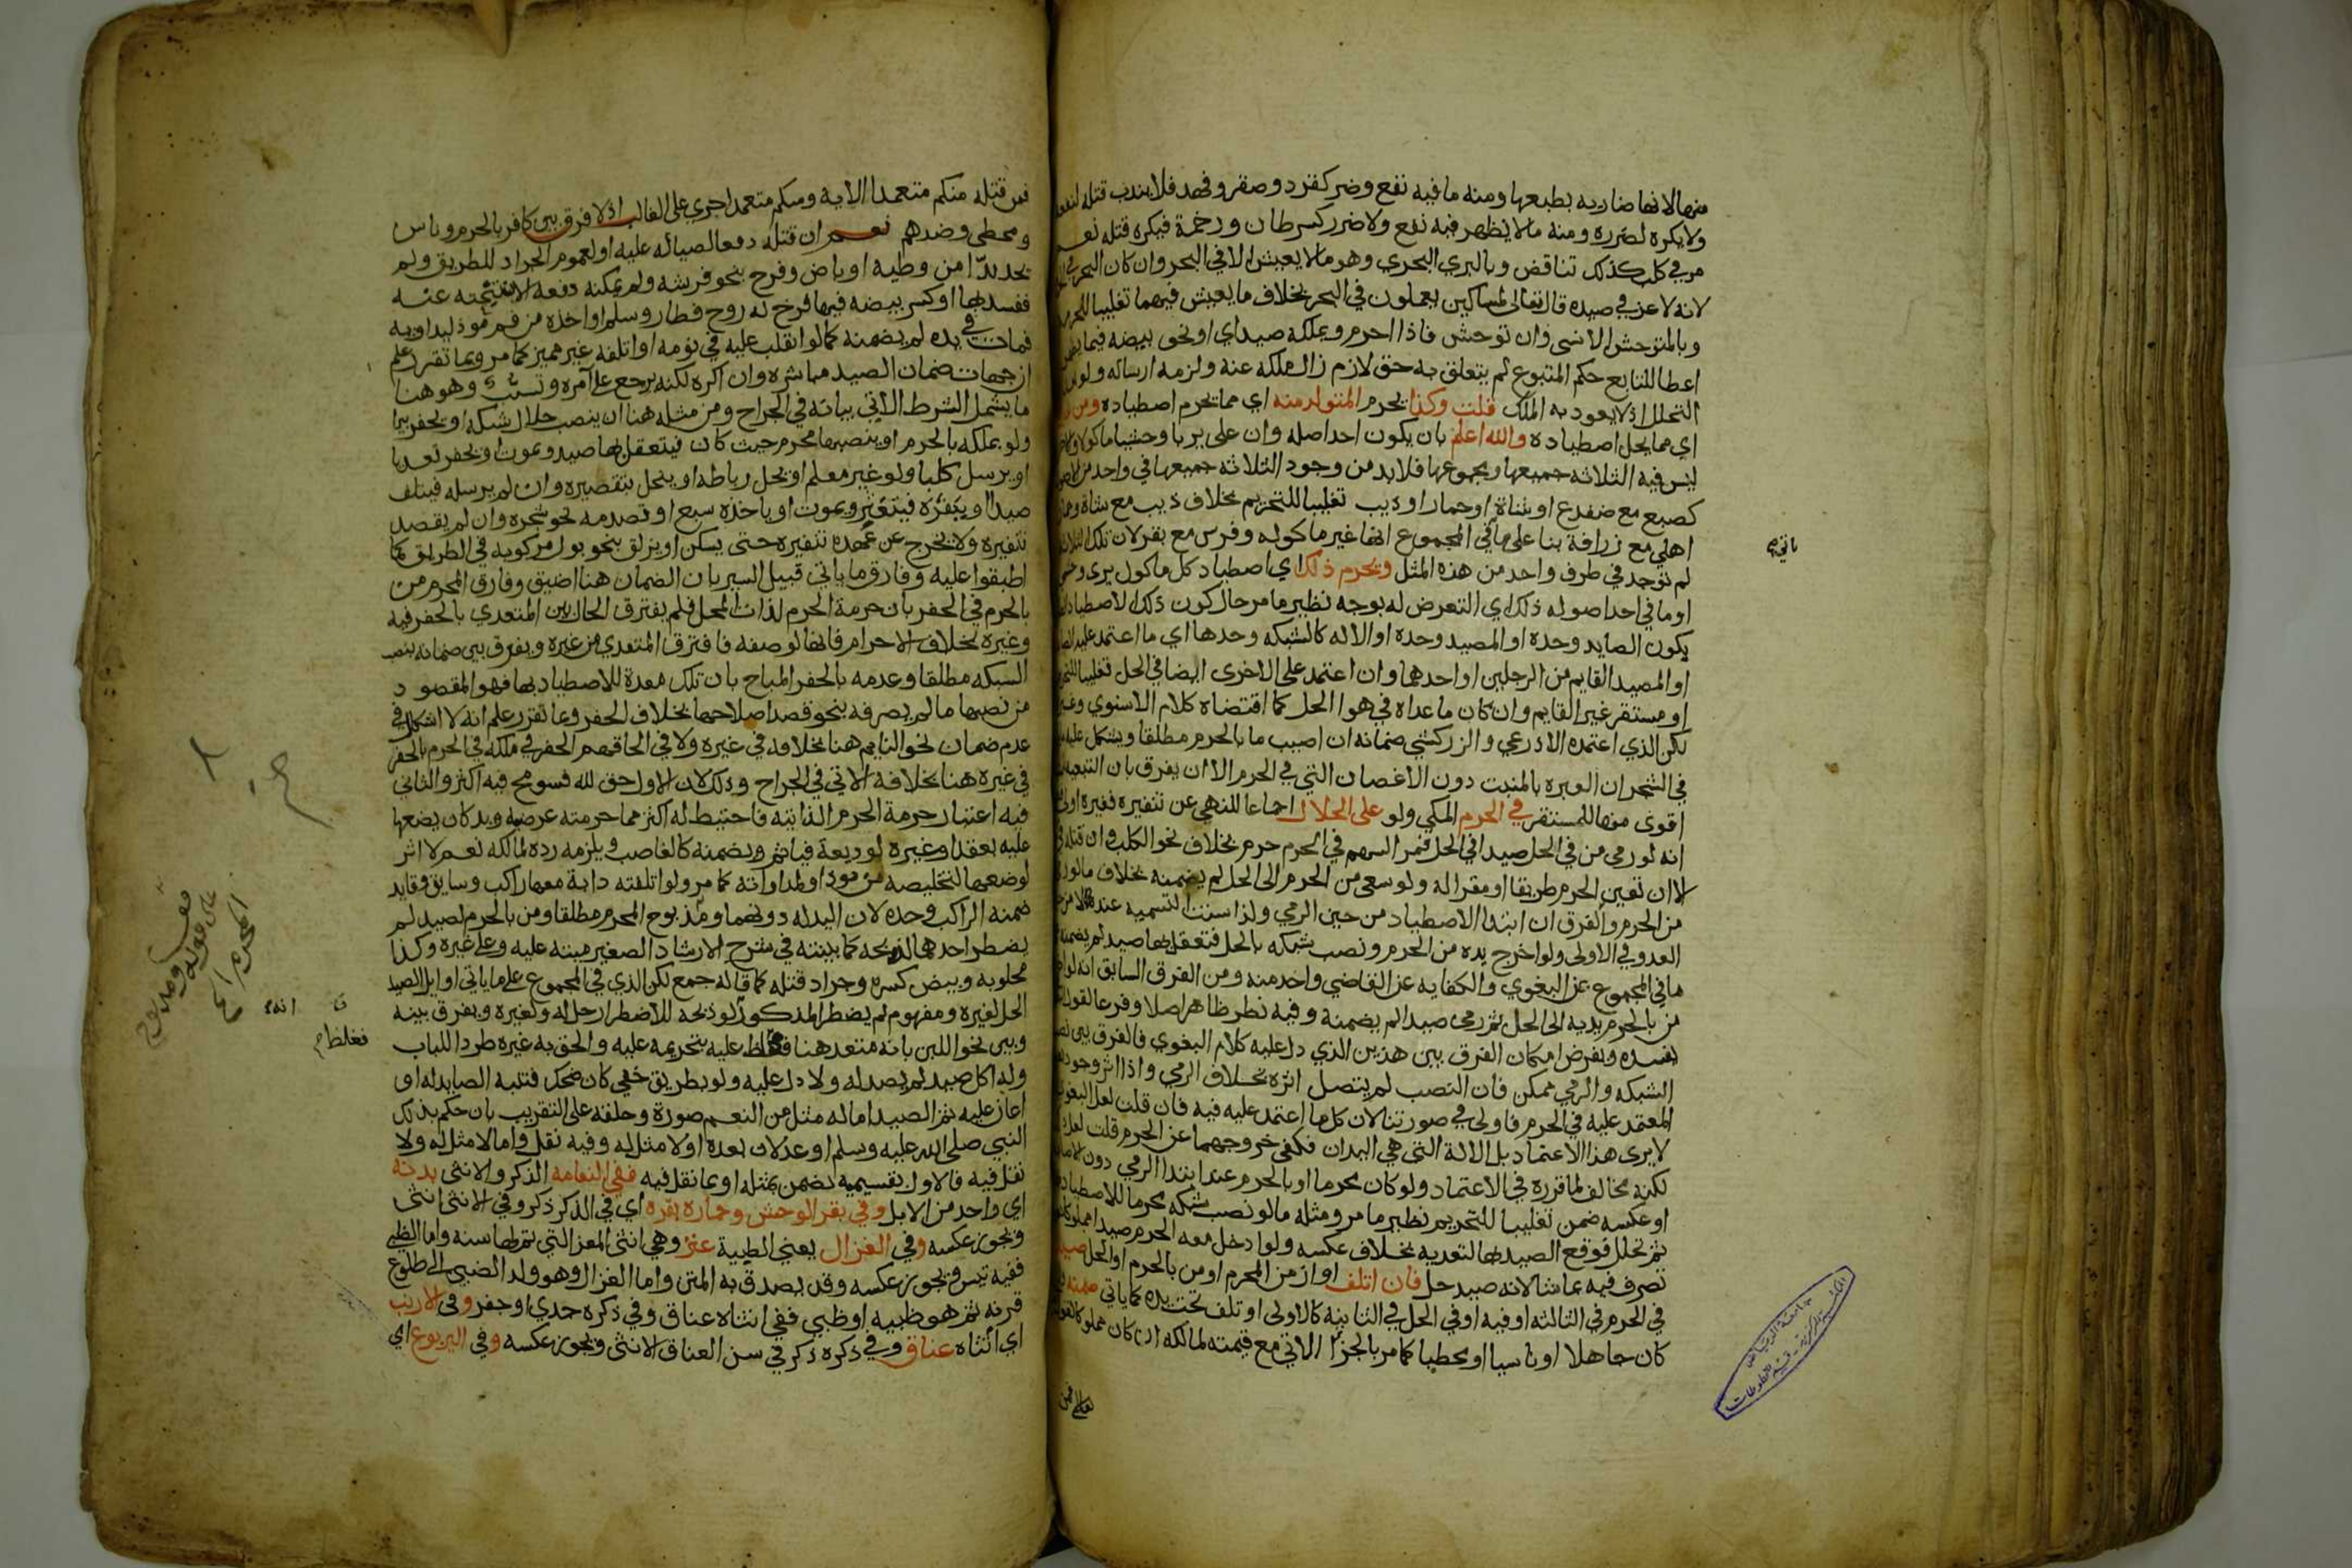 منها لانها ضاريه بطبعها ومنه ما فيه نفع وضر كقرد وصقر وفهد فلا يندب قتله لنفعه
ولا يكره لضرره ومنه ما لا يظهر فيه نفع ولا ضرر كسرطان ورخمة فيكره قتله نعم
مر في كلب كذلك تناقض وبالبري البحري وهو ما لا يعيش الا في البحر وان كان البحر في
لانه لا عز في صيده قال تعالى لمساكين يعملون في البحر بخلاف ما يعيش فيهما تغليبا للحرمة
وبالمتوحش الانسي وان توحش فاذا احرم وبملكه صيد اي او نحو بيضه فيما يظهر
اعطا للتابع حكم المتبوع لم يتعلق به حق لازم زال ملكه عنه ولزمه ارساله ولو بعد
التحلل اذ لا يعود به الملك قلت وكذا يحرم المتولد منه اي مما يحرم اصطياده ومن
اي مما يحل اصطياده والله اعلم بان يكون احد اصله وان على بريا وحشيا ماكولا
ليس فيه الثلاثه جميعها او مجموعها فلا بد من وجود الثلاثه جميعها في واحد من
كضبع مع ضفدع او شاة او حمار او ذيب تغليبا للتحريم بخلاف ذيب مع شاة وحمار
اهلي مع زرافة بنا على ما في المجموع انها غير ماكوله وفرس مع بقر لان تلك الثلاثه
لم توجد في طرف واحد من هذه المثل ويحرم ذلك اي اصطياد كل ماكول بري وحشي
او ما في احد اصوله ذلك اي التعرض له بوجه نظير ما مر حال كون ذلك الاصطياد
يكون الصايد وحده او المصيد وحده او الاله كالشبكه وحدها اي ما اعتمد عليه الصايد
او المصيد القايم من الرجلين او احدهما وان اعتمد على الاخرى ايضا في الحل تغليبا للتحريم
او مستقر غير القايم وان كان ما عداه في هوا الحل كما اقتضاه كلام الاسنوي وغيره
لكن الذي اعتمده الاذرعي والزركشي ضمانه ان اصيب ما بالحرم مطلقا ويشكل عليه
في الشجر ان العبره بالمنبت دون الاغصان التي في الحرم الا ان يفرق بان التبعية
اقوى منها للمستقر في الحرم المكي ولو على الحلال اجماعا للنهي عن تنفيره فغيره اولى
انه لو رمى من في الحل صيدا في الحل فمر السهم في الحرم حرم بخلاف نحو الكلب وان قتله في
الا ان تعين الحرم طريقا او مقرا له ولو سعى من الحرم الى الحل لم يضمنه بخلاف ما لو رمى
من الحرم والفرق ان ابتدا الاصطياد من حين الرمي ولذا سنت التسميه عنده لا من
العدو في الاولى ولو اخرج يده من الحرم ونصب شبكه بالحل فتعقل بها صيد لم يضمنه
ما في المجموع عن البغوي والكفايه عن القاضي واخذ منه ومن الفرق السابق انه لو
من بالحرم يديه الى الحل ثم رمى صيدا لم يضمنه وفيه نظر ظاهر اصلا وفرعا
نفسه وبفرض امكان الفرق بين هذين الذي دل عليه كلام البغوي فالفرق بين نصب
الشبكه والرمي ممكن فان النصب لم يتصل اثره بخلاف الرمي واذا اثر وجود
المعتمد عليه في الحرم فاولى في صورتنا لان كل ما اعتمد عليه فيه فان قلت لعل البغوي
لا يرى هذا الاعتماد بل الالة التي هي اليدان فكفى خروجهما عن الحرم قلت لعله
لكنه مخالف لما قرره في الاعتماد ولو كان محرما او بالحرم عند ابتدا الرمي دون الاصابه
او عكسه ضمن تغليبا للتحريم نظير ما مر ومثله ما لو نصب شبكه محرما للاصطياد
ثم تحلل فوقع الصيد بها لتعديه بخلاف عكسه ولو ادخل معه الحرم صيدا مملوكا له
تصرف فيه بما شا لانه صيد حل فان اتلف او ازمن المحرم او من بالحرم او الحل صيدا
في الحرم في الثالثه او فيه او في الحل في الثانيه كالاولى او تلف تحت يده كما ياتي ضمنه
كان جاهلا او ناسيا او مخطيا كما مر بالجزا الاتي مع قيمته لمالكه ان كان مملوكا
ياتي
جامعة الرياض
فمن قتله منكم متعمدا الاية ومنكم متعمدا جري على الغالب اذ لا فرق بين كافر بالحرم وناس
ومخطي وضدهم نعم ان قتله دفعا لصياله عليه او لعموم الجراد للطريق ولم
يجد بدا من وطيه او باض وفرخ بنحو فرشه ولم يمكنه دفعه الا بتنحيته عنه
ففسد بها او كسر بيضه فيها فرخ له روح فطار وسلم او اخذه من فم موذ ليداويه
فمات في يده لم يضمنه كما لو انقلب عليه في نومه او اتلفه غير مميز كما مر وبما تقرر علم
ان جهات ضمان الصيد مباشره وان اكره لكنه يرجع على آمره وتسبب وهو هنا
ما يشمل الشرط الاتي بيانه في الجراح ومن مثله هنا ان ينصب حلال شبكه او يحفر بيرا
ولو بملكه بالحرم او ينصبها محرم حيث كان فيتعقل بها صيد ويموت او يحفر تعديا
او يرسل كلبا ولو غير معلم او يحل رباطه او ينحل بتقصيره وان لم يرسله فيتلف
صيدا او ينفره فيتعثر ويموت او ياخذه سبع او تصدمه نحو شجره وان لم يقصد
تنفيره ولا يخرج عن عهده تنفيره حتى يسكن او يزلق بنحو بول مركوبه في الطريق كما
اطبقوا عليه وفارق ما ياتي قبيل السير بان الضمان هنا اضيق وفارق المحرم من
بالحرم في الحفر بان حرمة الحرم لذات المحل فلم يفترق الحال بين المتعدي بالحفر فيه
وغيره بخلاف الاحرام فانها لوصفه فافترق المتعدي من غيره ويفرق بين ضمانه بنصب
الشبكه مطلقا وعدمه بالحفر المباح بان تلك معدة للاصطياد بها فهو المقصود
من نصبها ما لم يصرفه بنحو قصد اصلاحها بخلاف الحفر وبما تقرر علم انه لا اشكال في
عدم ضمان نحو النايم هنا بخلافه في غيره ولا في الحاقهم الحفر في ملكه في الحرم بالحفر
في غيره هنا بخلافه الاتي في الجراح وذلك لان الاول حق لله فسومح فيه اكثر والثاني
فيه اعتبار حرمة الحرم الذاتيه فاحتيط له اكثر مما حرمته عرضيه ويد كان يضعها
عليه بعقد او غيره لوديعة فياثم ويضمنه كالغاصب ويلزمه رده لمالكه نعم لا اثر
لوضعها لتخليصه من موذ او لمداواته كما مر ولو اتلفته دابة معها راكب وسايق وقايد
ضمنه الراكب وحده لان اليد له دونهما ومذبوح المحرم مطلقا ومن بالحرم لصيد لم
يضطر احدهما لذبحه كما بينته في شرح الارشاد الصغير ميتة عليه وعلى غيره وكذا
محلوبه وبيض كسره وجراد قتله كما قاله جمع لكن الذي في المجموع على ما ياتي اوايل الصيد
الحل لغيره ومفهوم لم يضطر المذكور لو ذبحه للاضطرار حل له ولغيره ويفرق بينه
وبين نحو اللبن بانه متعد هنا فغلظ عليه بتحريمه عليه والحق به غيره طردا للباب
وله اكل صيد لم يصد له ولا دل عليه ولو بطريق خفي كان ضحك فتنبه الصايد له او
اعان عليه ثم الصيد اما له مثل من النعم صورة وخلقه على التقريب بان حكم بذلك
النبي صلى الله عليه وسلم او عدلان بعده او لا مثل له وفيه نقل واما لا مثل له ولا
نقل فيه فالاول بقسيميه يضمن بمثله او بما نقل فيه ففي النعامه الذكر والانثى بدنه
اي واحد من الابل وفي بقر الوحش وحماره بقره اي في الذكر ذكر وفي الانثى انثى
ويجوز عكسه وفي الغزال يعني الظبية عنز وهي انثى المعز التي تم لها سنه واما الظبي
ففيه تيس ويجوز عكسه وقد يصدق به المتن واما الغزال وهو ولد الضبي الى طلوع
قرنه ثم هو ظبيه او ظبي ففي انثاه عناق وفي ذكره جدي او جفر وفي الارنب
اي انثاه عناق وفي ذكره ذكر في سن العناق الانثى ويجوز عكسه وفي اليربوع اي
فغلظ